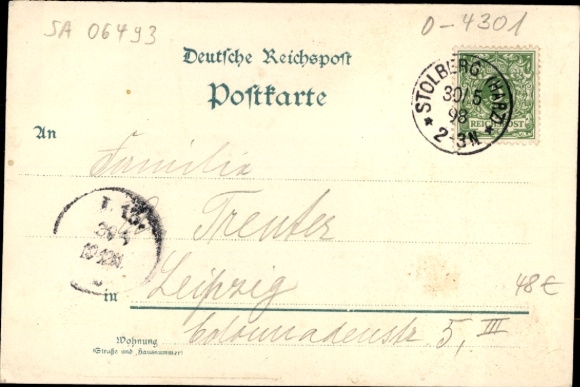 SA 06493
D-4301
Deutsche Reichspost
Postkarte
STOLBERG (HARZ)
30/5
98
2-3N
REICHSPOST
An
Familie
Trenter
in Leipzig
48€
Colonnadenstr 5, III
Wohnung
(Straße und Hausnummer)